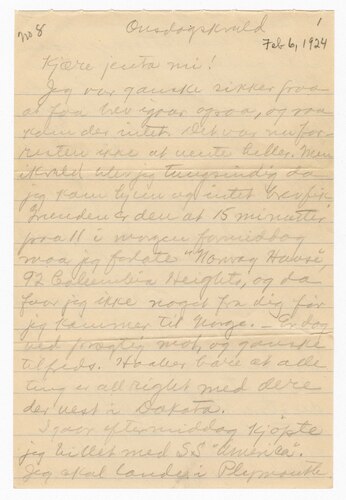 No 8
Onsdagskveld
1
Feb 6, 1924
Kjære jenta mi!
Jeg var ganske sikker paa
at faa brev igaar ogsaa, og saa
kom der intet. Det var nu for-
resten ikke at vente heller. Men
ikveld blev jeg tungsindig da
jeg kom hjem og intet brev fik.
Grunden er den at 15 minutter
paa 11 i morgen formiddag
maa jeg forlate "Norway House",
92 Columbia Heights, og da
faar jeg ikke noget fra dig før
jeg kommer til Norge. — Endog
ved godt mot, og ganske
tilfreds. Haaber bare at alle
ting er all right med dere
der vest i Dakota.
Igaar eftermiddag kjøpte
jeg billet med SS "America".
Jeg skal lande i Plymouth